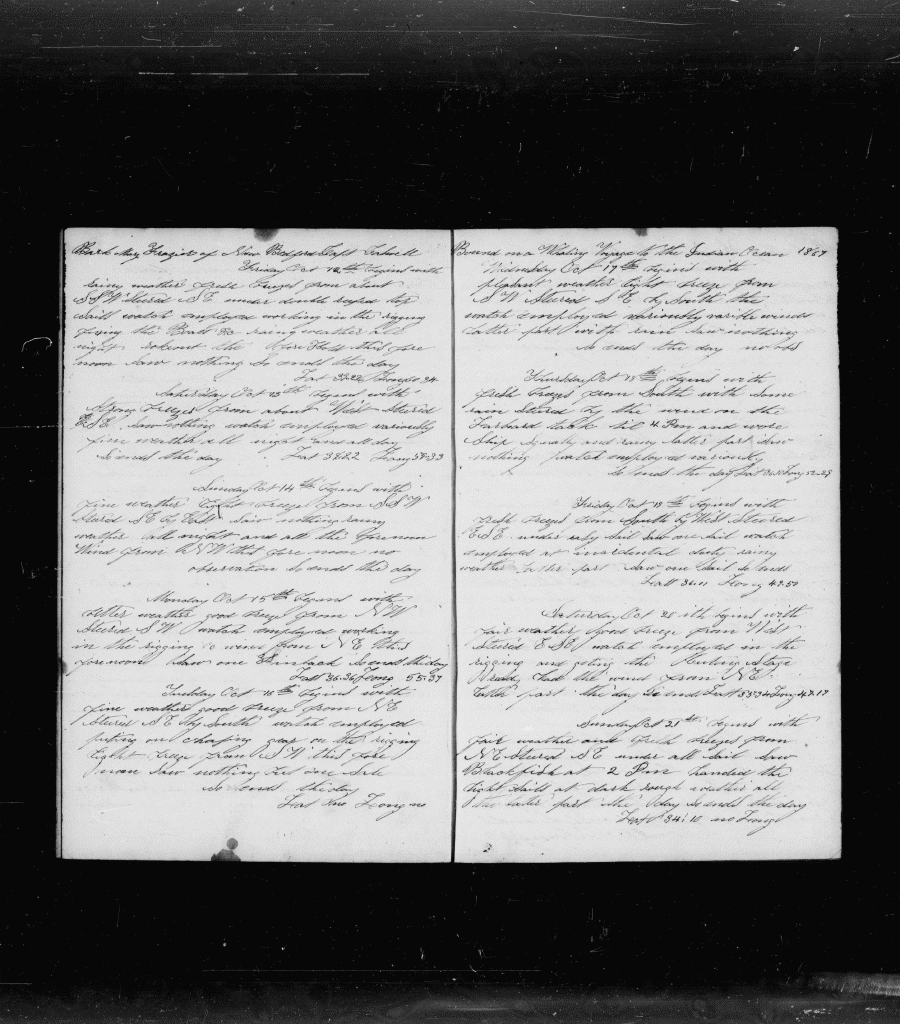 Bark Mary Frazier of New Bedford Capt
Friday Oct 12th begins with
rainy weather fresh breezes from about
SSW Steered SE under double reefed top
Sails watch employed working in the rigging
fixing the Boats &c rainy weather all
night the this fore
noon Saw nothing So ends this day
Lat Long 34
Saturday Oct 13th begins with
Strong breezes from about West Steered
ESE Saw nothing watch employed variously
fine weather all night and all day
So ends the day Lat 38.22 Long 58-33
Sunday Oct 14th begins with
fine weather light breeze from SSW
Steered SE by East Saw nothing rainy
weather all night and all this forenoon
Wind from NW this fore noon no
observation So ends the day
Monday Oct 15th begins with
better weather good breeze from NW
Steered SW watch employed working
in the rigging wind from NE this
forenoon Saw one Finback So ends the day
Latt 36:36 Long 55-37
Tuesday Oct 16th begins with
fine weather good breeze from NE
Steered SE by South watch employed
putting on chafing gear on the rigging
light breeze from SW this fore
noon Saw nothing but one Sile
So ends the day
Lat no Long no
Bound on a Whaling Voyage to the Indian Ocean 1867
Wednesday Oct 17th begins with
pleasant weather light breeze from
SW Steered SE by South the
watch employed variously varible winds
latter part with rain Saw nothing
So ends the day no obs
Thursday Oct 18th begins with
fresh breezes from South with Some
rain Steered by the wind on the
Larboard tack til 4 Pm and wore
Ship Squaly and rainy latter part Saw
nothing watch employed variously
So ends the day Lat Long 52-28
Friday Oct 19th begins with
fresh breezes from South by West Steered
ESE under easy Sail Saw one Sail watch
employed at incidental duty rainy
weather latter part Saw one Sail So ends
Latt 36.11 Long 49.50
Saturday Oct 20 ith begins with
fair weather good breeze from West
Steered ESE watch employed in the
rigging and geting the Cuting Stage
ready had the wind from NE
latter part the day So ends Latt 35:34 Long 48.19
Sunday Oct 21st begins with
fair weather and fresh breezes from
NE Steered SE under all Sail Saw
Blackfish at 2 Pm handed the
light Sails at dark rough weather all
the later part the day So ends the day
Latt 34:10 no Long